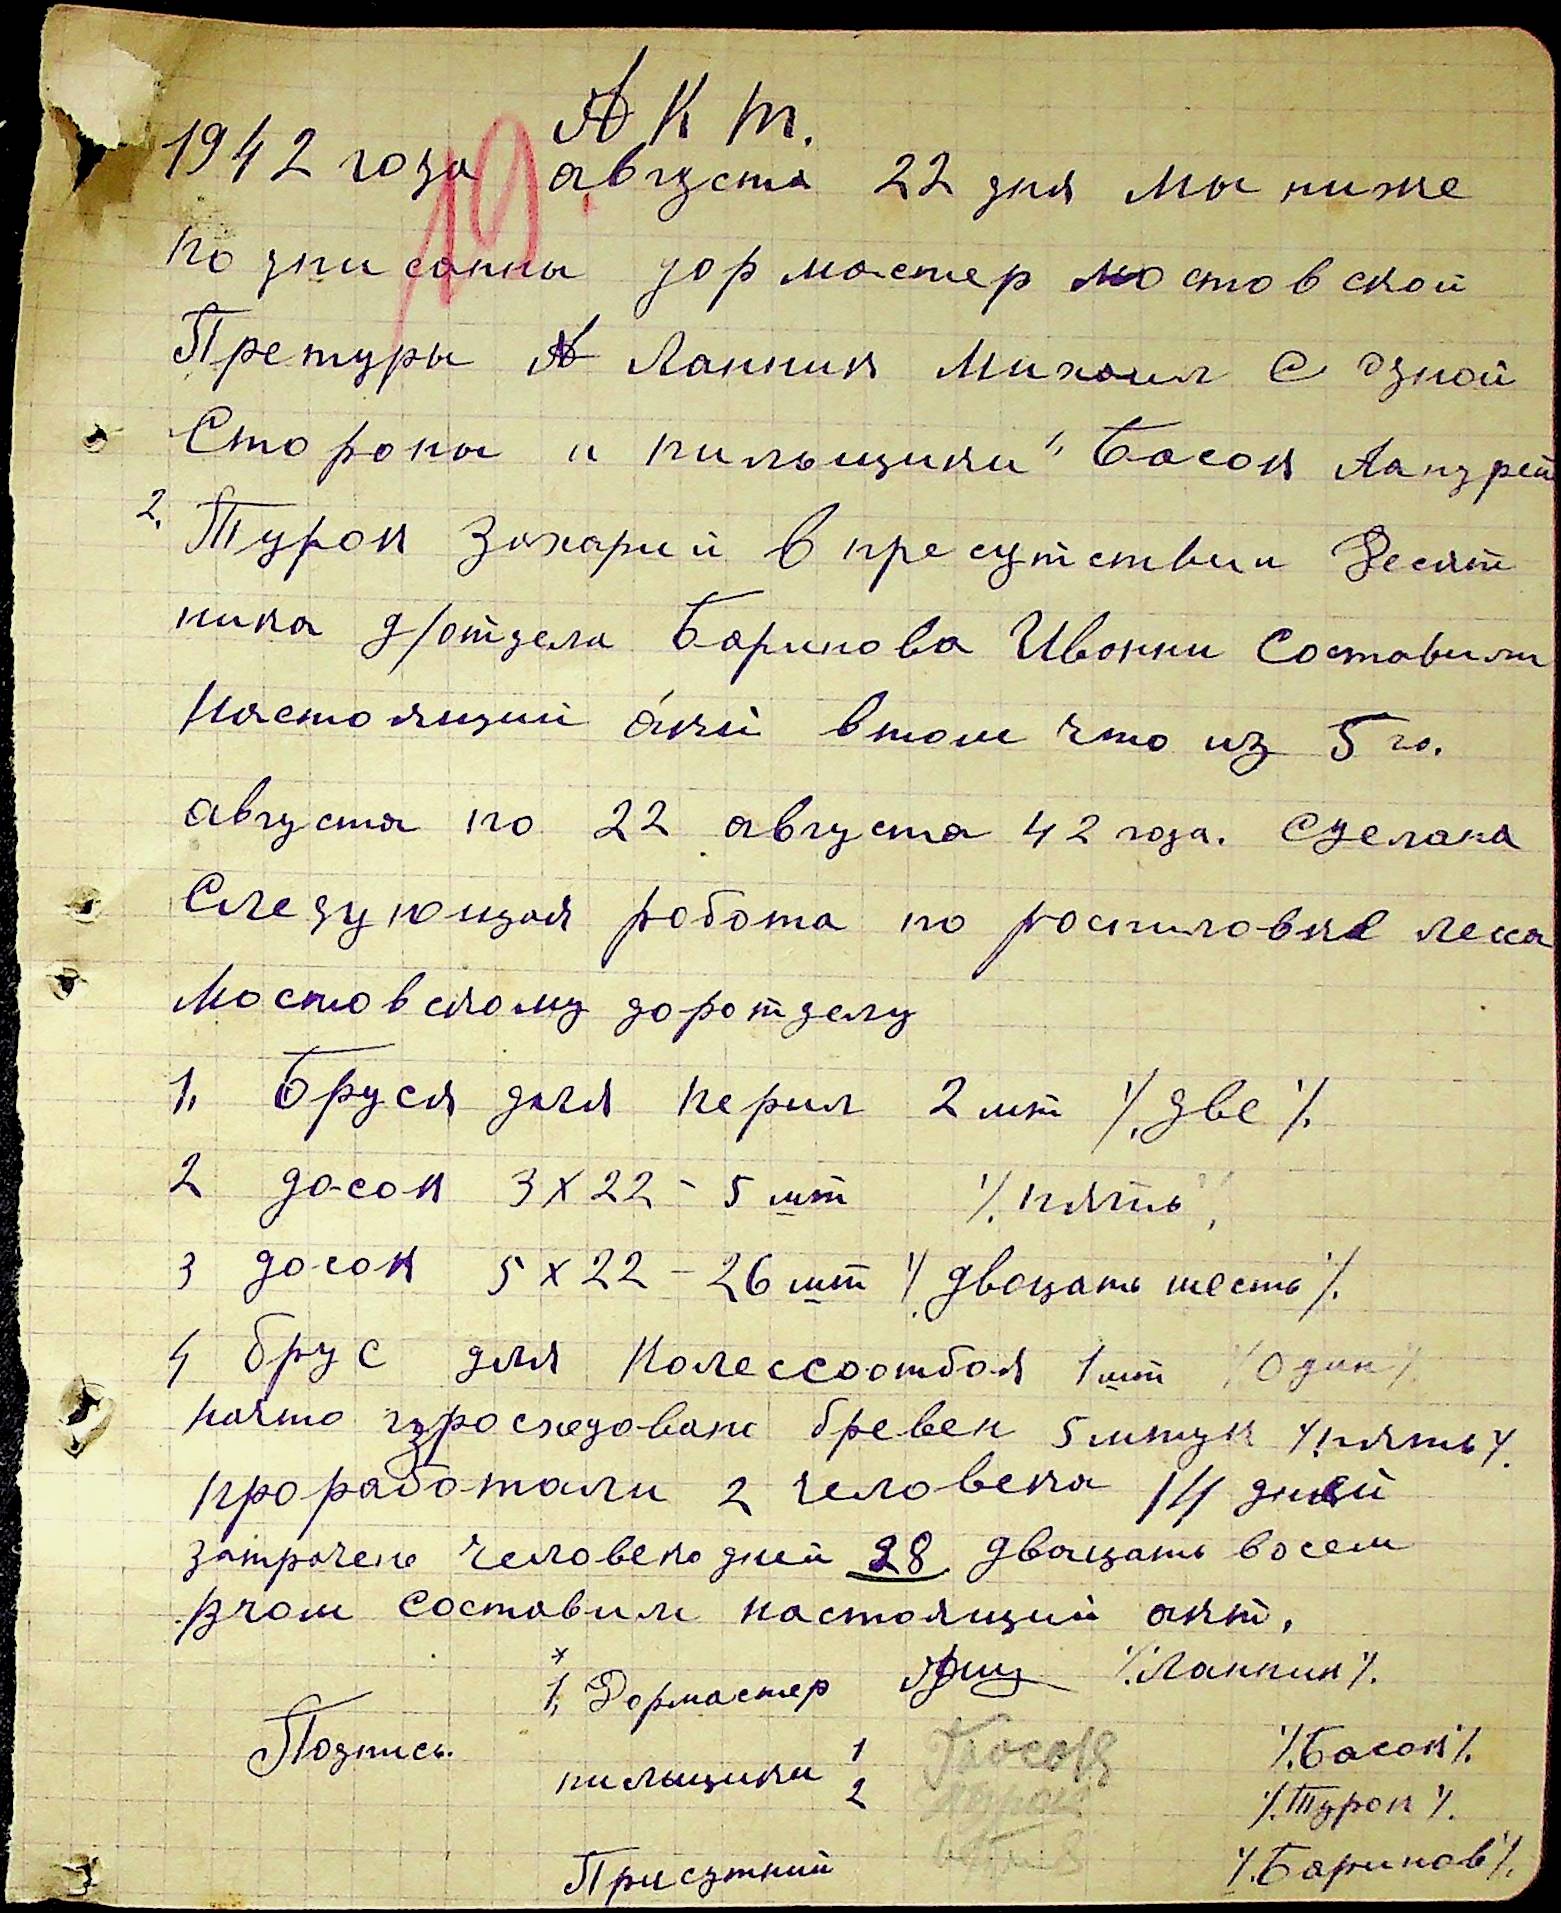 Акт.
1942 года августа 22 дня мы ниже
19
подписанны дормастер мостовской
Претуры Ланник Михаил с одной
Стороны и пильщики 1, Басок Андрей
2. Турок Захарий в пресутствии Десят
ника д/отдела Баринова Ивонни Составили
Настоящий акт втом что из 5го.
августа по 22 августа 42 года. сделана
Следующая робота по роспиловке леса
Мостовскому доротделу
1. Бруся для перил 2 шт /. две /.
2 досок 3х22 - 5 шт /. пять /.
3 досок 5х22 - 26 шт /. двацать шесть /.
4 брус для Колессоотбоя 1 шт /. Один /.
начто бревен 5 штук /. пять /.
проработали 2 человека 14 дней
затрачено человеко дней 28 двацать восем
вчом составили настоящий акт.
1, Дормастер /. Ланник /.
Подпись.
пильщики 1 Басок /. Басок /.
2 /. Турок /.
Присутний /. Баринов /.